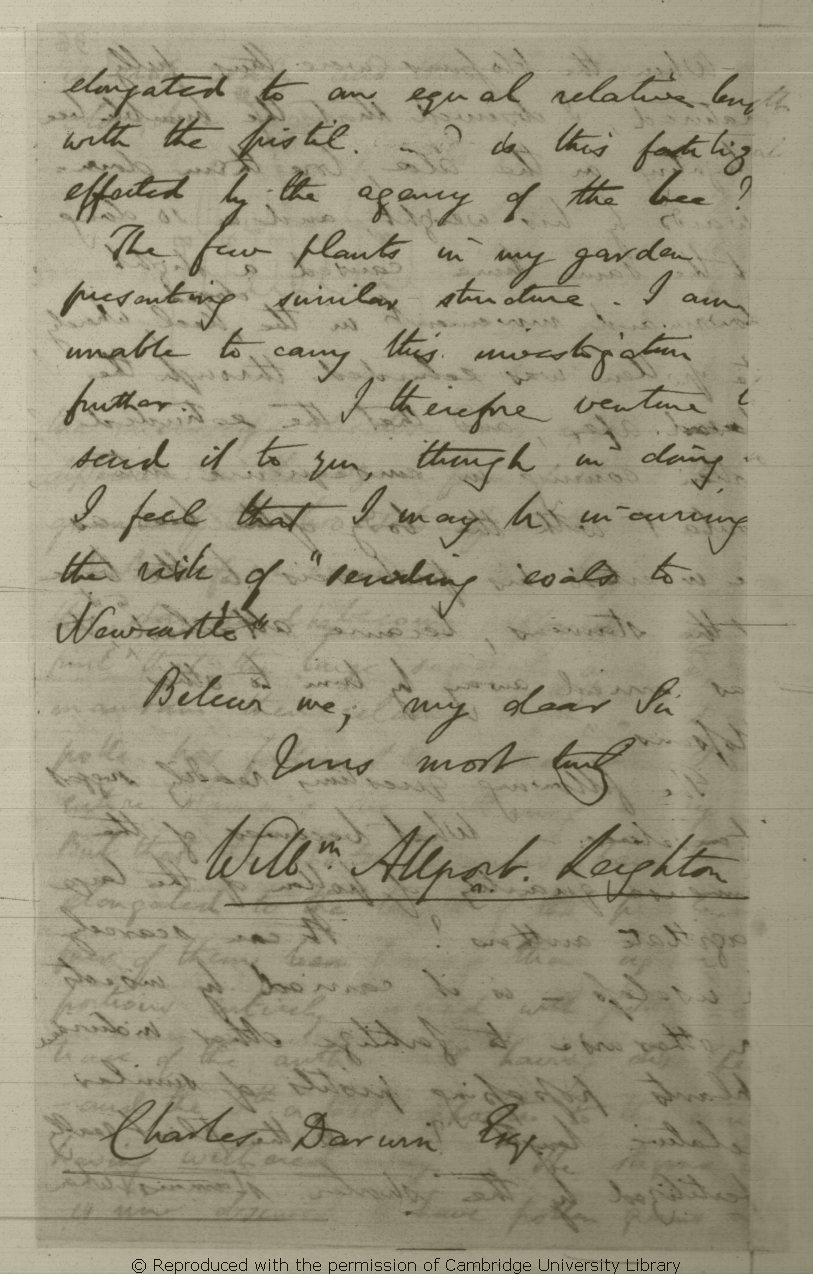 elongated to an equal relative leng
with the pistil. — ? is this
effected by the agency of the bee?
The few plants in my garden
presenting similar structure. I am
unable to carry this investigation
further. I therefore venture t
send it to you, though in doing
I feel that I may be incurring
the risk of "sending coals to
Newcastle"
Believe me, my dear Sir
Yours most truly
Willm Allport. Leighton
Charles Darwin Esqr.
© Reproduced with the permission of Cambridge University Library